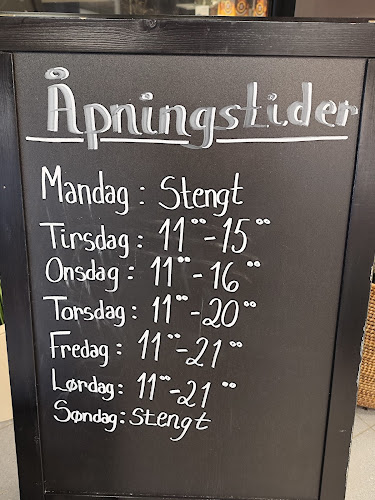 Åpningstider
Mandag: Stengt
Tirsdag: 11°°-15°°
Onsdag: 11°°-16°°
Torsdag: 11°°-20°°
Fredag: 11°°-21°°
Lørdag: 11°°-21°°
Søndag: Stengt